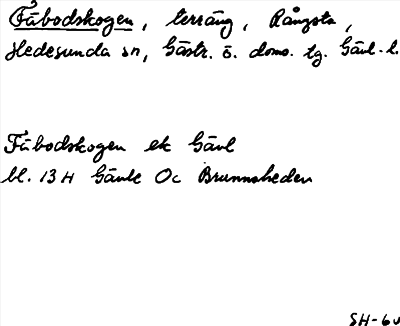 Fäbodskogen, terräng, Rångsta,
Hedesunda sn, Gästr. ö. doms. tg. Gävl. l.
Fäbodskogen ek Gävl
bl. 13 H Gävle Oc Brunnsheden
SH-60